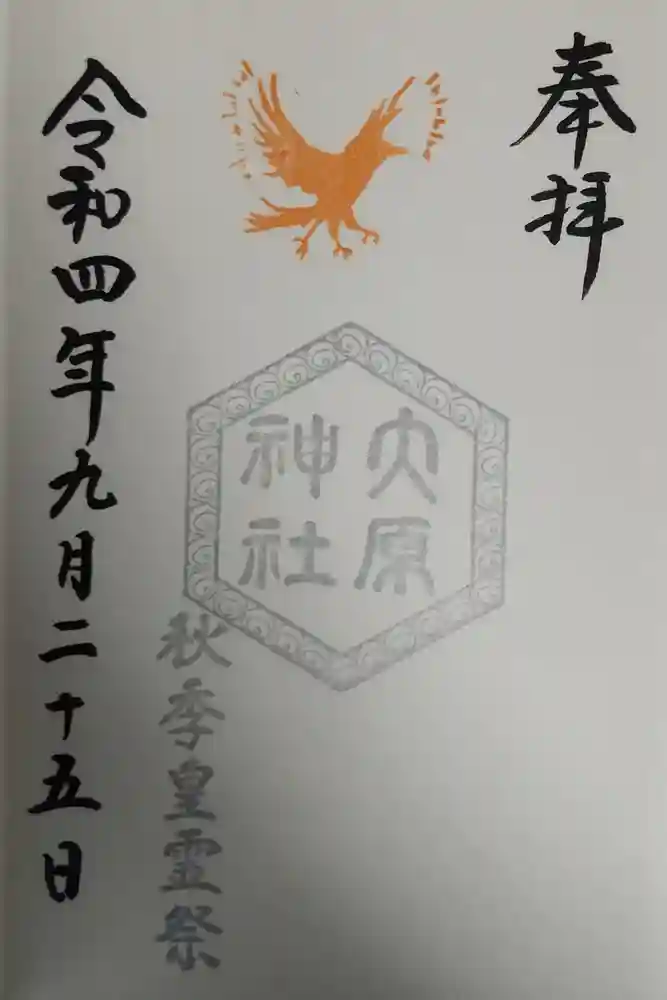 奉拝
大原
神社
秋季皇霊祭
令和四年九月二十五日